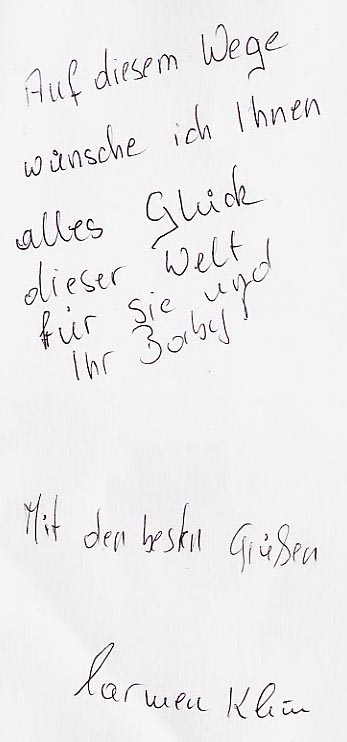 Auf diesem Wege
wünsche ich Ihnen
alles Glück
dieser Welt
für Sie und
Ihr Baby!
Mit den besten Grüßen
Carmen